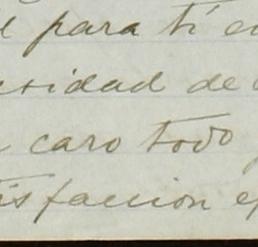 para ti
sidad de
caro todo
isfaccion